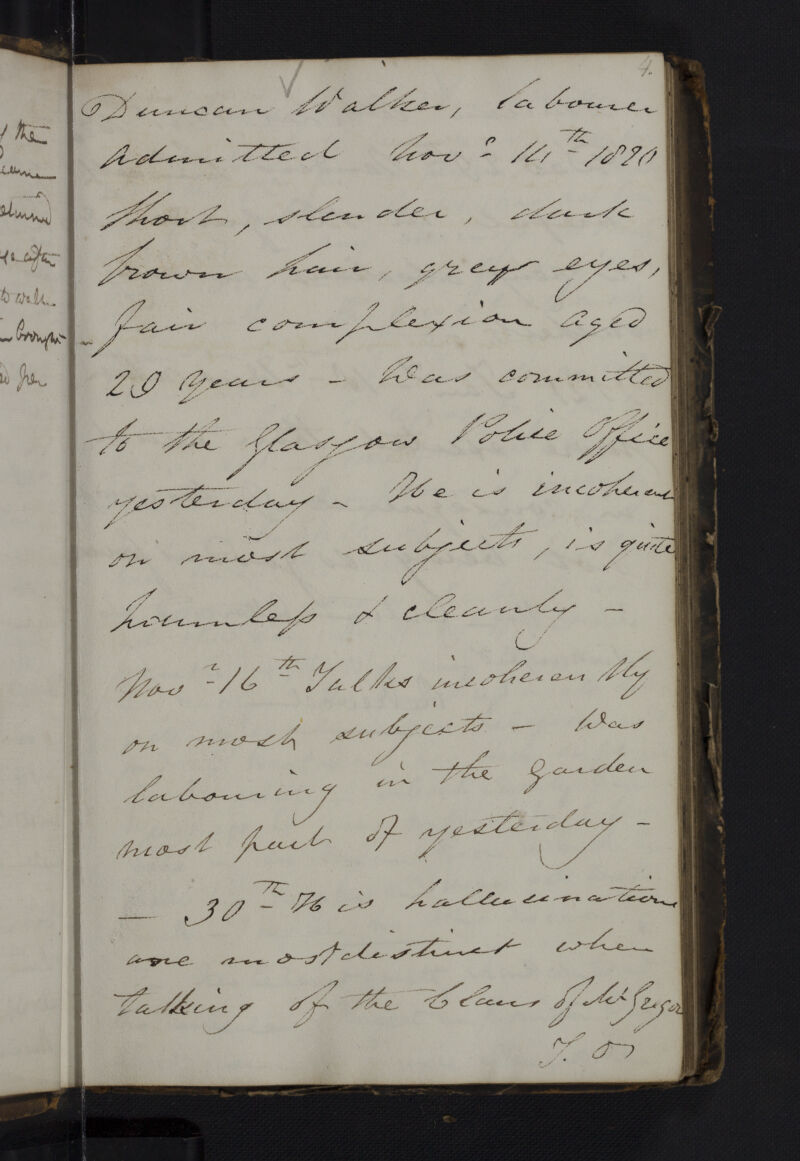 4.
Duncan Walker, labourer
Admitted Novr 14th 1820
Short, slender, dark
brown hair, grey eyes,
fair complexion aged
20 years – Was committed
to the Glasgow Police Office
yesterday – He is incoherent
on most subjects, is quite
harmless & cleanly –
Novr 16th Talks incoherently
on most subjects – Was
labouring in the Garden
most part of yesterday –
– 30th His hallucinations
are most distinct when
talking of the Clans of McGregor
T. O
the